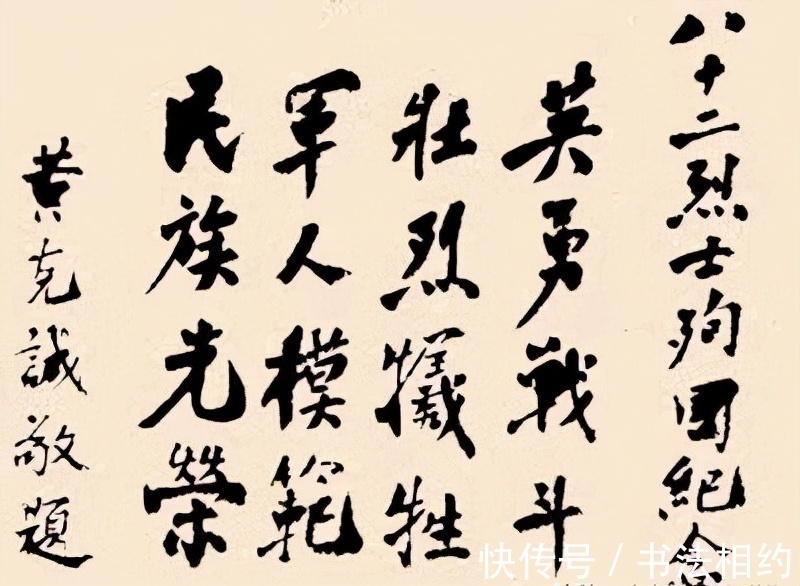 八十二烈士殉国紀念
英勇戰斗
壯烈犧牲
軍人模範
民族光榮
黄克誠敬題
快传号 / 书法相约